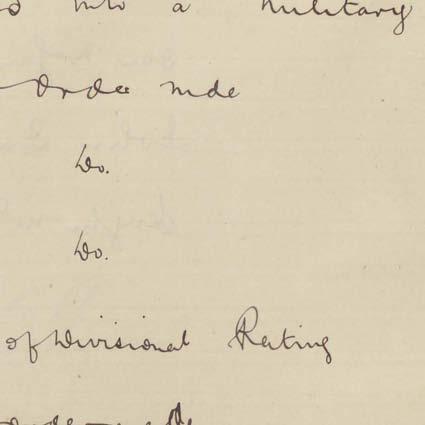 into a military
Order mde
Do.
Do.
of Divisional Rating